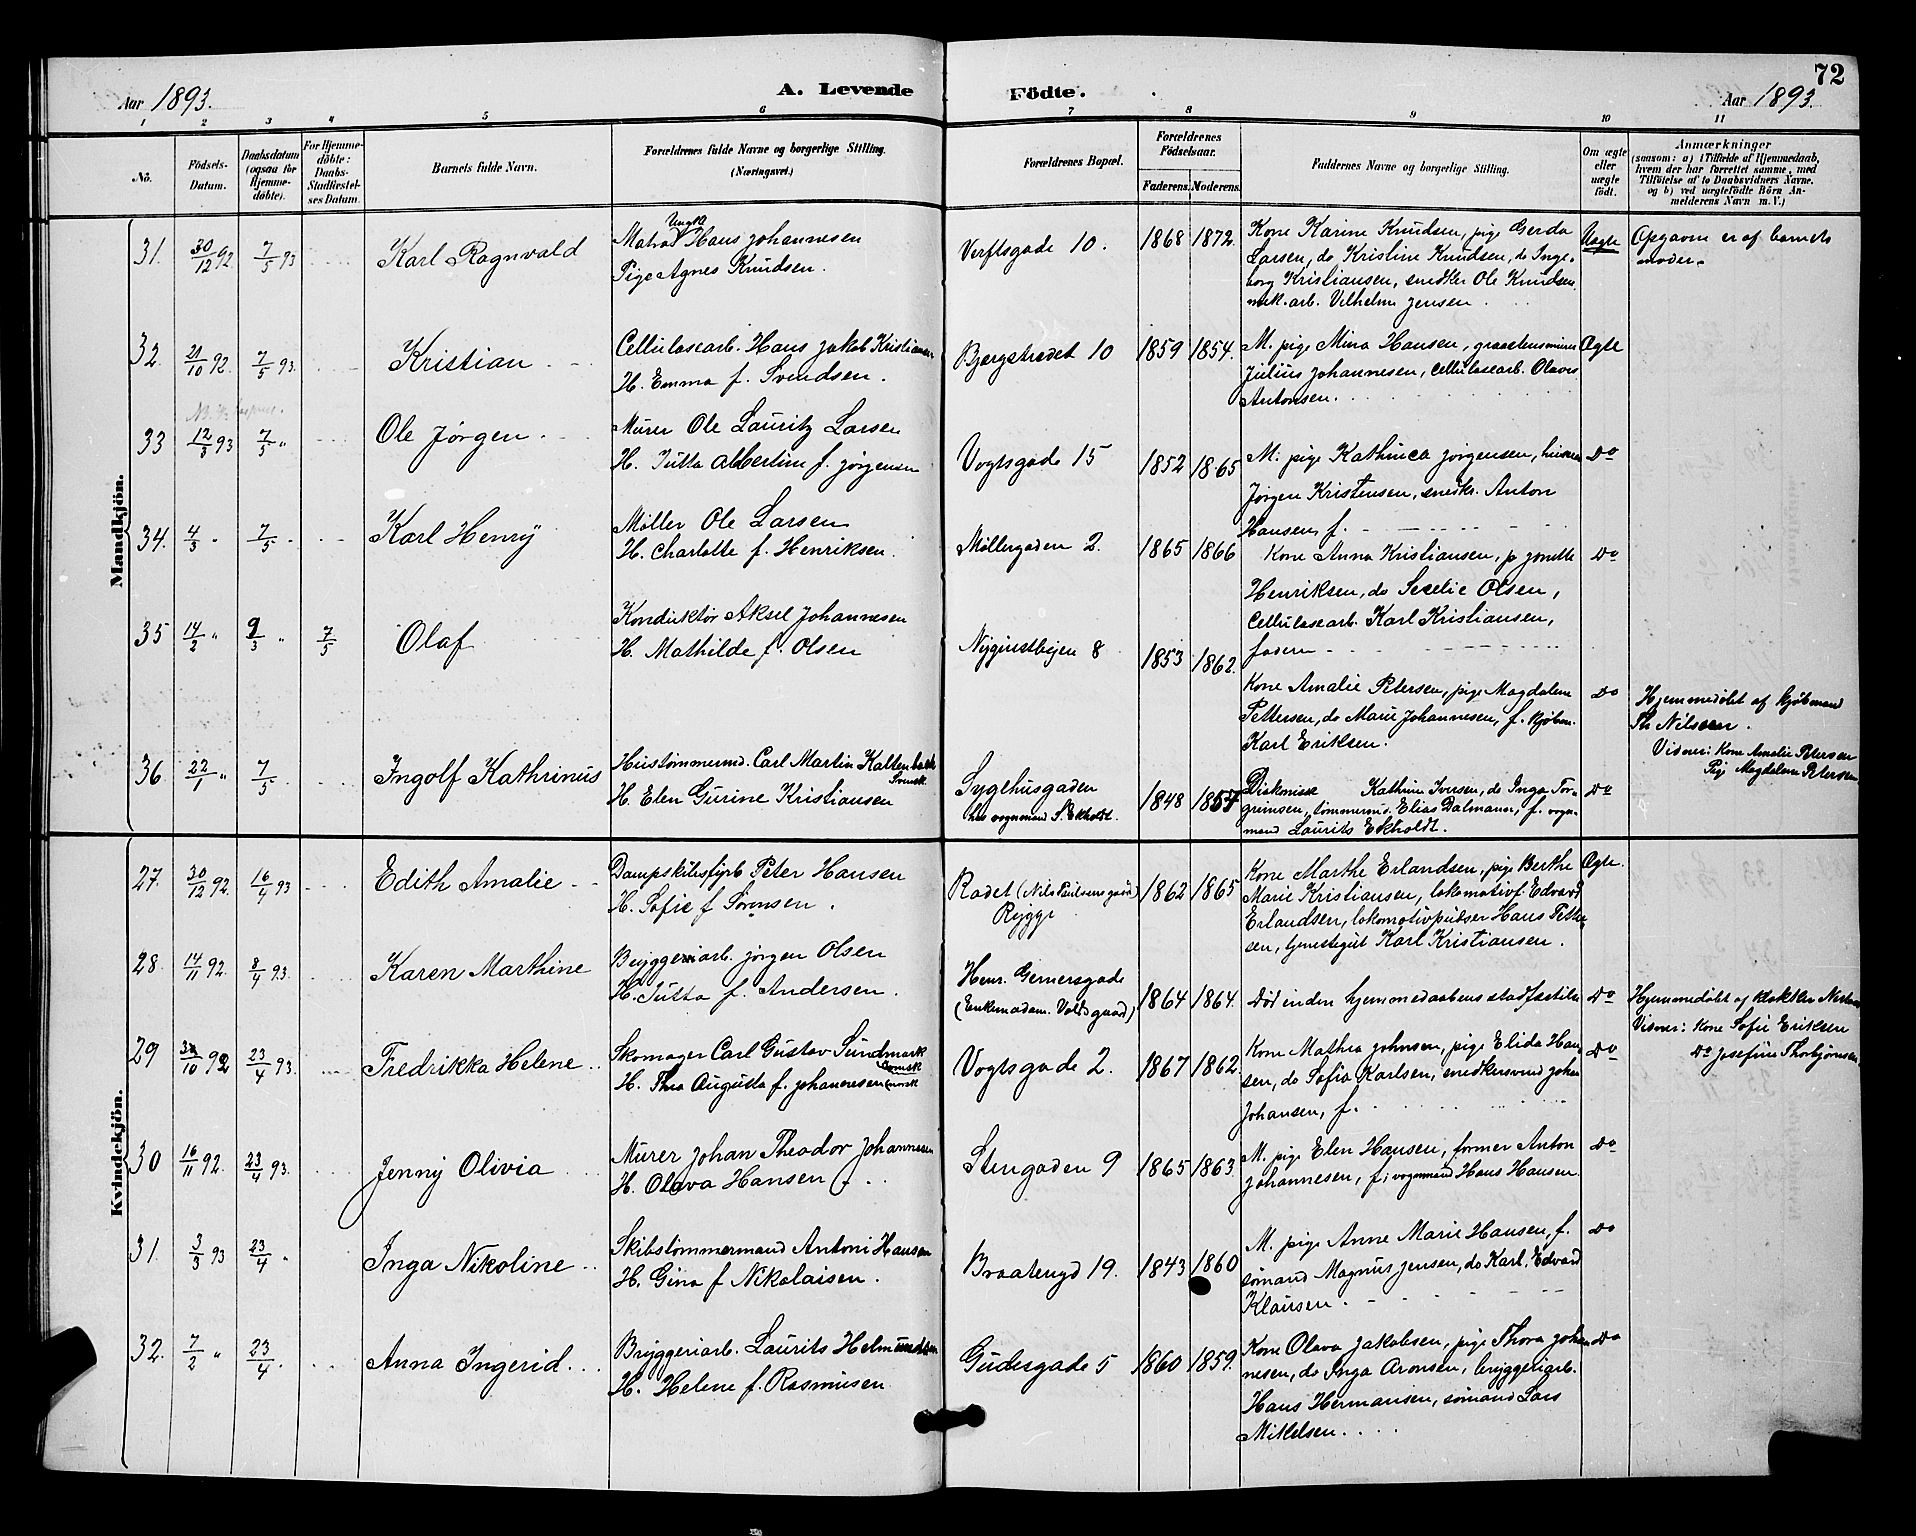 72
Aar 1893.
A. Levende Födte.
Aar 1893.
1 2 3 4 5 6 7 8 9 10 11
No.
Födsels-
Datum.
Daabsdatum
(ogsaa for
Hjemme-
döbte).
For Hjemme-
döbte:
Daabs-
Stadfæstel-
ses Datum.
Barnets fulde Navn.
Forældrenes fulde Navne og borgerlige Stilling.
(Næringsvei.)
Forældrenes Bopæl.
Forældrenes
Födselsaar.
Faderens. Moderens.
Faddernes Navne og borgerlige Stilling.
Om ægte
eller
uægte
födt.
Anmærkninger
(saasom: a) i Tilfælde af Hjemmedaab,
hvem der har forrettet samme, med
Tilföielse af to Daabsvidners Navne,
og b) ved uægtefödte Börn An-
melderens Navn m. V.)
Mandkjön.
31. 30/12 92. 7/5 93 Karl Ragnvald
Ungk
Matros Hans Johannesen
Pige Agnes Knudsen.
Verftsgade 10. 1868 1872.
Kone Karine Knudsen, pige Gerda
Larsen, do Kristine Knudsen, do Inge-
borg Kristiansen, snedker Ole Knudsen,
mek. arb. Vilhelm Jensen.
Uægte
Opgaven er af barnets
moder.
32. 21/10 92. 7/5 93. Kristian
Cellulosearb. Hans Jakob Kristiansen
H. Emma f. Svendsen.
Bjergstrædet 10 1859 1854.
M. pige Mina Hansen,
Julius Johannesen, cellulosearb. Olaves
Antonsen.
Ægte
33 12/3 93 7/5 " Ole Jørgen.
Murer Ole Lauritz Larsen
H. Jutta Albertine f. Jørgensen
Vogtsgade 15 1852 1865
M. pige Kathinca Jørgensen,
Jørgen Kristensen, snedkr. Anton
Hansen, f.
Do
34. 4/3 " 7/5 " Karl Henry
Møller Ole Larsen
H. Charlotte f. Henriksen.
Møllergaden 2. 1865 1866
Kone Anna Kristiansen, p Jonette
Henriksen, do Secelie Olsen,
Cellulosearb. Karl Kristiansen,
faderen
Do
35 14/2 " 9/3 " 7/5 Olaf
Konduktør Aksel Johannesen
H. Mathilde f. Olsen
8 1853 1862.
Kone Amalie Petersen, pige Magdalene
Pettersen, do Marie Johannesen, f. kjøbm.
Karl Eriksen.
Do
Hjemmedøbt af kjøbmand
Th Nilssen.
Vidner: Kone Amalie Petersen
Pige Magdalene Petersen
36. 22/1 " 7/5 Ingolf Kathrinus
Hustømmermd. Carl Martin Kaltenback
Svensk
H. Elen Gurine Kristiansen
Sygehusgaden
hos vognmand S. Ekholdt.
1848 1857
Diakonisse Kathrine Iversen, do Inga Tor-
grimsen, tømmermd. Elias Dalmann, f. vogn-
mand Laurits Ekholdt.
Do
Kvindekjön.
27. 30/12 92. 16/4 93 Edith Amalie
Dampskibsfyrb. Peter Hansen
H. Sofie f Sørensen.
Radet (Nils Paulsens gaard)
Rygge
1862 1865
Kone Marthe Erlandsen, pige Berthe
Marie Kristiansen, lokomotivf. Edvard
Erlandsen, lokomotivpudser Hans Petter-
sen, tjenestegut Karl Kristiansen.
Ægte.
28. 14/11 92. 8/4 93. Karen Marthine
Bryggeriarb. Jørgen Olsen
H. Jutta f. Andersen.
Henr. Gernersgade
(Enkemadam Volds gaard)
1864 1864.
Død inden hjemmedaabens stadfæstelse
Do
Hjemmedøbt af
Vidner: Kone Sofie Eriksen
Do Josefine Thorbjørnsen
29 30/10 92 23/4 93. Fredrikka Helene
Skomager Carl Gustav Sundmark
(svensk
H. Thea Augusta f. Johannesen (norsk
Vogtsgade 2. 1867 1862.
Kone Mathea Johnsen, pige Elida Han-
sen, do Sofia Karlsen, snedkersvend Johan
Johansen, f.
Do
30 16/11 92. 23/4 93. Jenny Olivia
Murer Johan Theodor Johannesen
H. Olava Hansen f.
Stengaden 9 1865 1863.
M. pige Elen Hansen, former Anton
Johannesen, f; vognmand Hans Hansen
Do
31. 3/3 93 23/4 " Inga Nikoline
Skibstømmermand Antoni Hansen
H. Gina f Nikolaisen.
Braatengd 19. 1843 1860
M. pige Anne Marie Hansen, f.
sømand Magnus Jensen, do Karl Edvard
Klausen.
Do
32. 7/2 " 23/4 " Anna Ingerid
Bryggeriarb. Laurits Helmundsen
H. Helene f. Rasmusen
Gudesgade 5 1860 1859.
Kone Olava Jakobsen, pige Thora Johan-
nesen, do Inga Aronsen, bryggeriarb.
Hans Hermansen, sømand Lars
Mikelsen.
Do